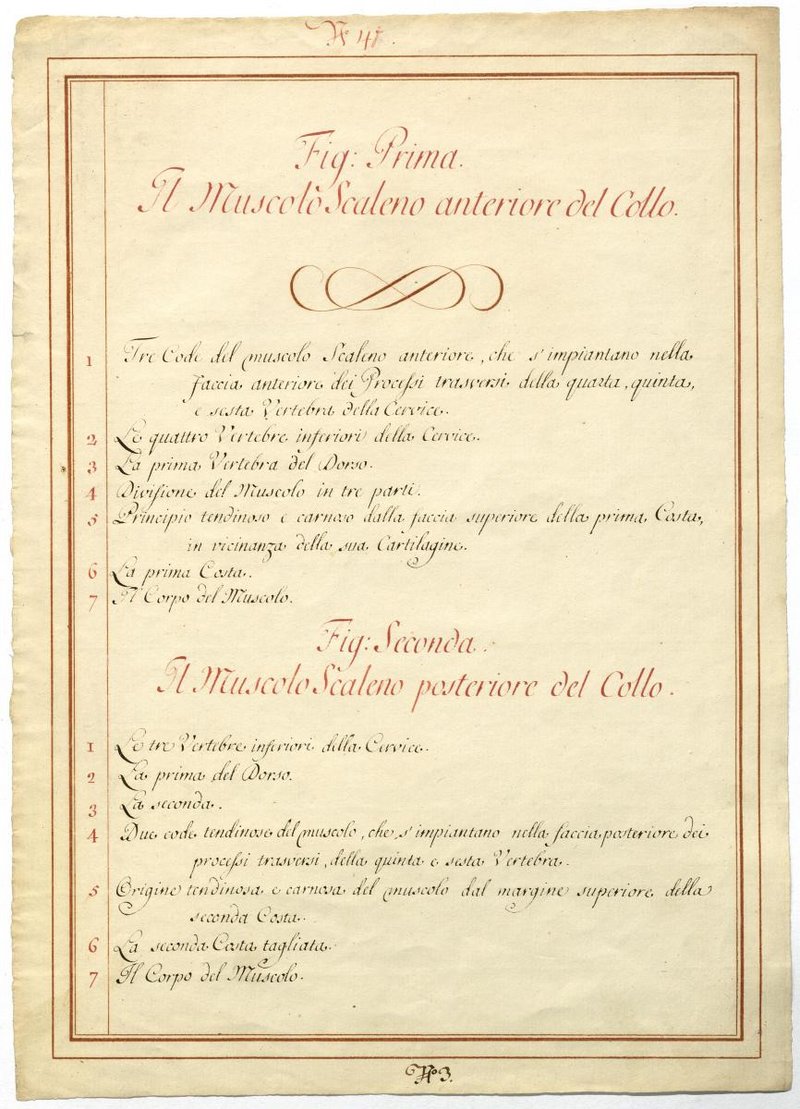 Nº 41.
Fig: Prima.
Il Muscolo Scaleno anteriore del Collo.
1 Tre Code del muscolo Scaleno anteriore, che s'impiantano nella
faccia anteriore dei Processi trasversi della quarta, quinta,
e sesta Vertebra della Cervice.
2 Le quattro Vertebre inferiori della Cervice.
3 La prima Vertebra del Dorso.
4 Divisione del Muscolo in tre parti.
5 Principio tendinoso e carnoso dalla faccia superiore della prima Costa,
in vicinanza della sua Cartilagine.
6 La prima Costa.
7 Il Corpo del Muscolo.
Fig: Seconda.
Il Muscolo Scaleno posteriore del Collo.
1 Le tre Vertebre inferiori della Cervice.
2 La prima del Dorso.
3 La seconda.
4 Due code tendinose del muscolo, che s'impiantano nella faccia posteriore dei
processi trasversi, della quinta e sesta Vertebra.
5 Origine tendinosa e carnosa del muscolo dal margine superiore della
seconda Costa.
6 La seconda Costa tagliata.
7 Il Corpo del Muscolo.
Nº 3.